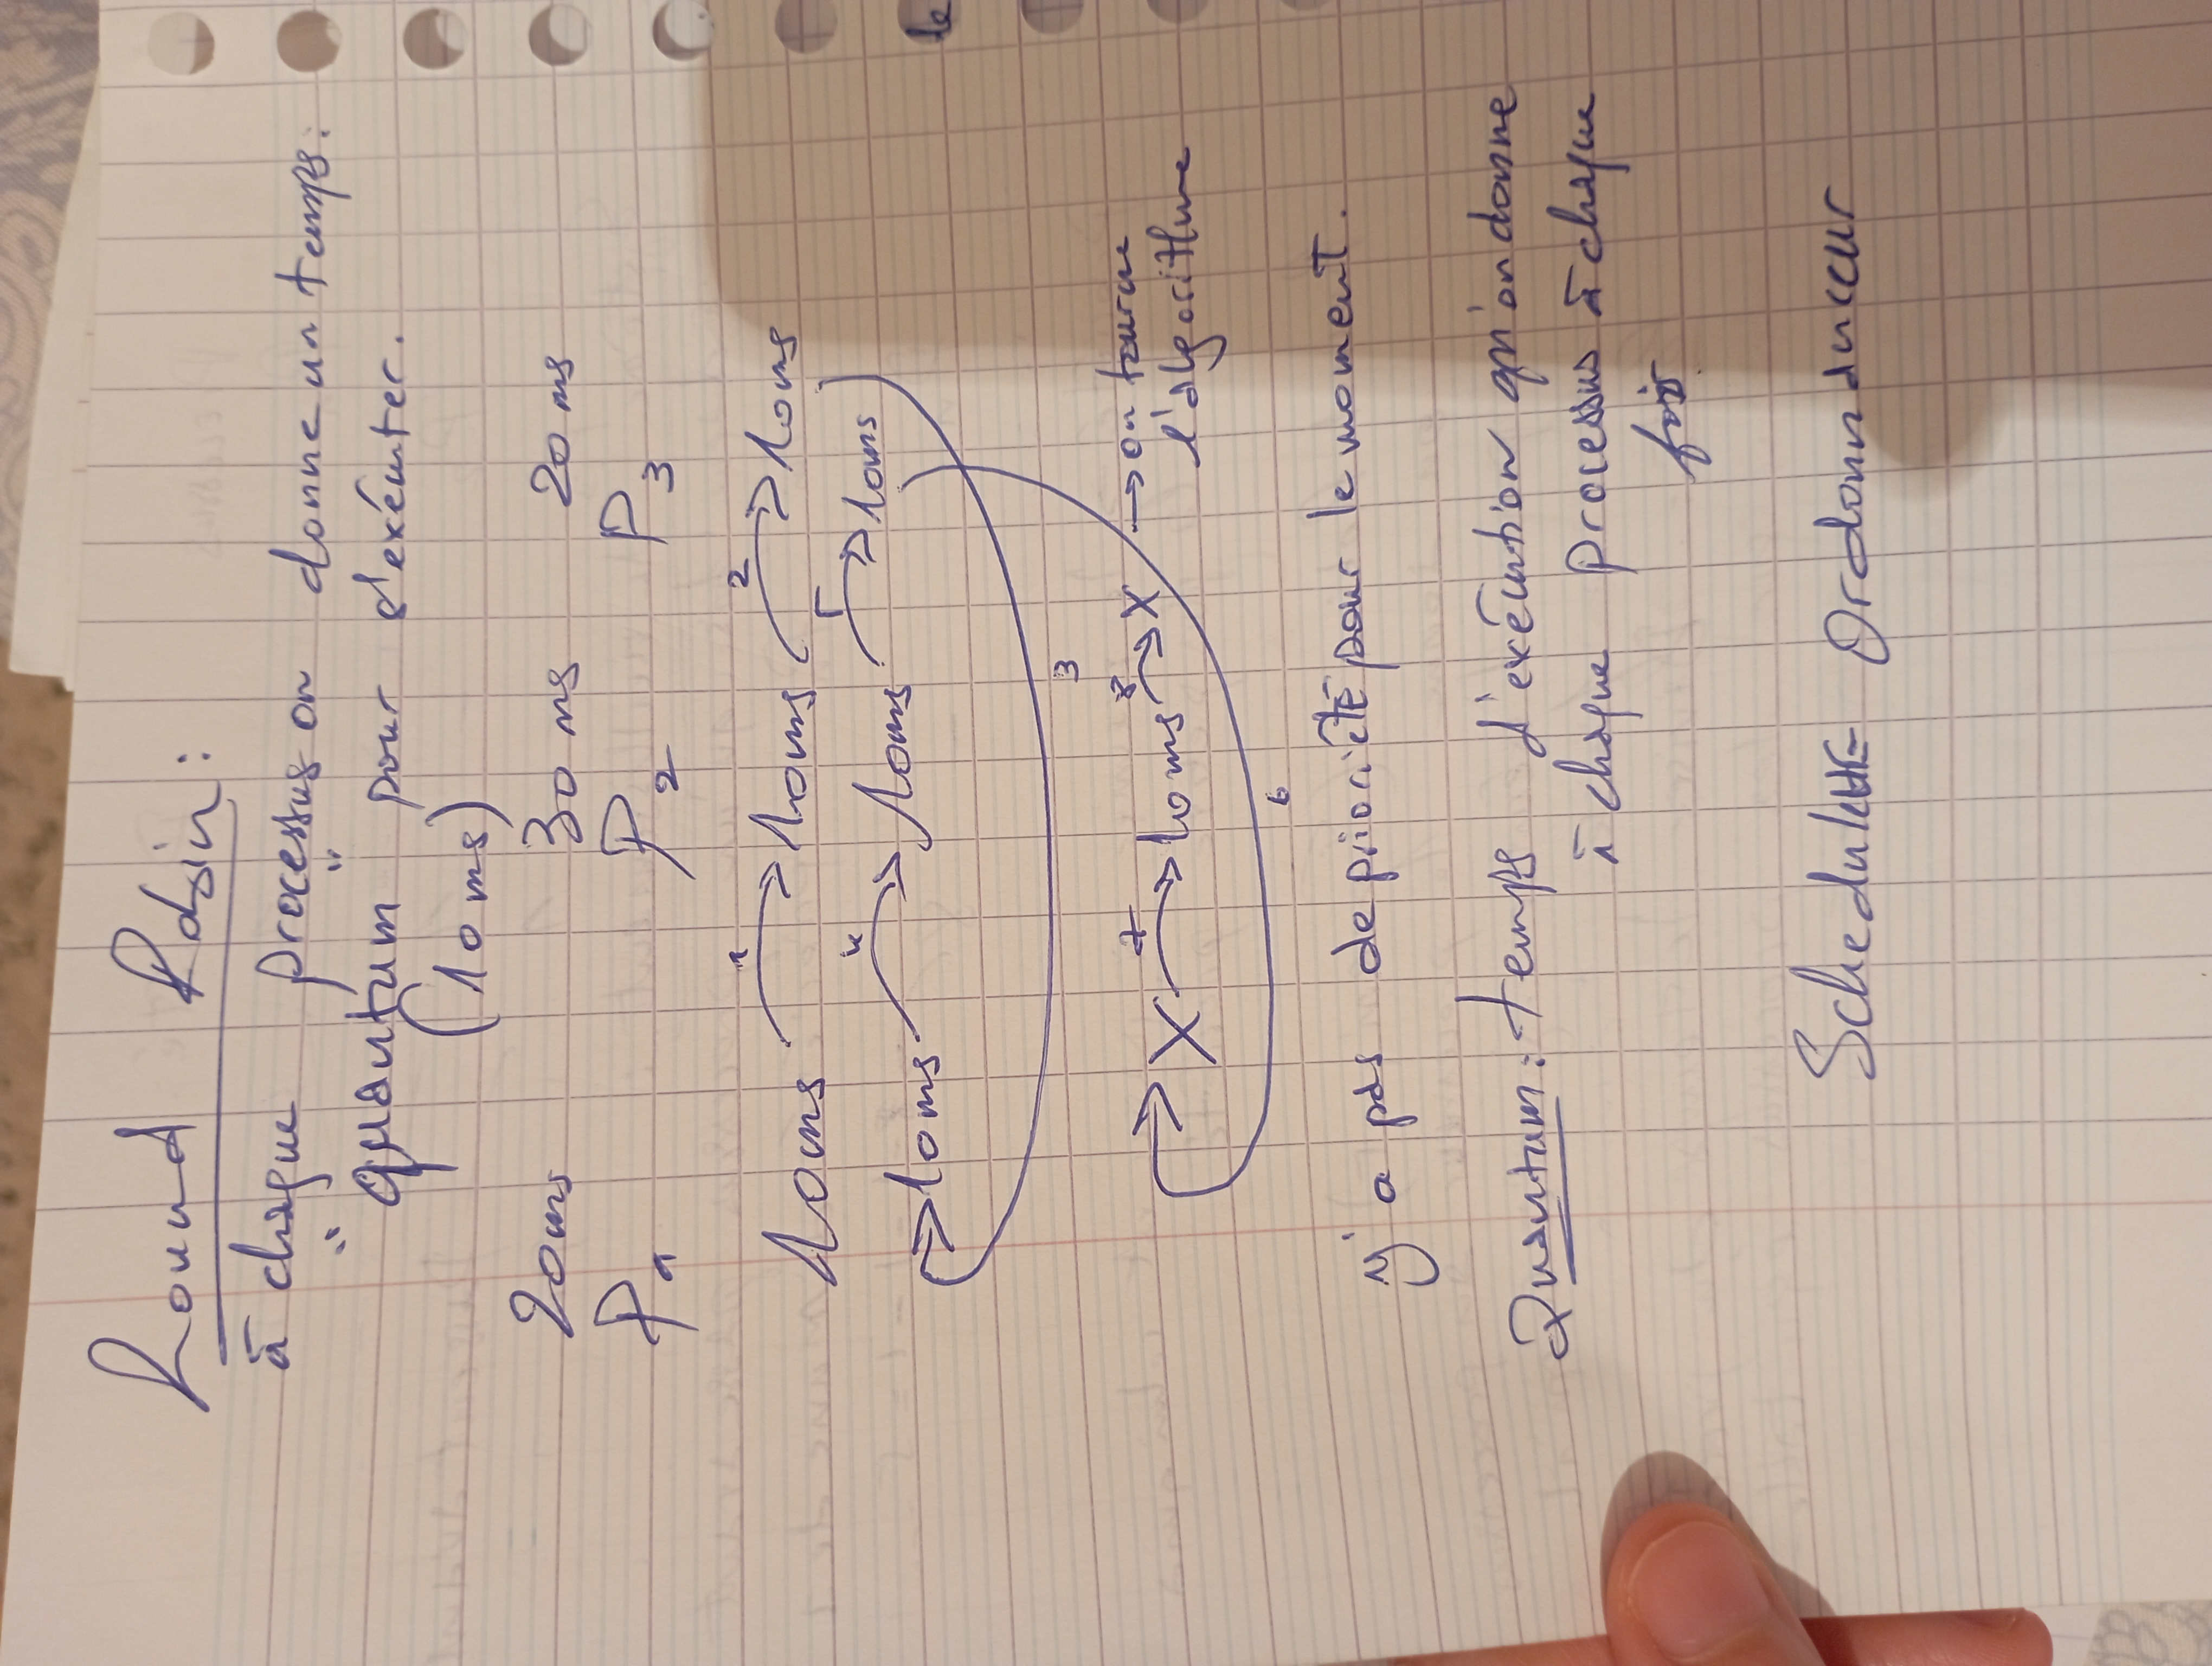 Round Robin :
à chaque processus on donne un temps :
"quantum" pour s'exécuter.
(10 ms)
20ms 30 ms 20 ms
P1 P2 P3
10ms 1 10ms 2 10ms
10ms 4 10ms 5 10ms
3
X 7 10ms 8 X → on tourne
l'algorithme
6
y'a pas de priorité pour le moment.
Quantum : temps d'exécution qu'on donne
à chaque processus à chaque
fois
Ordonnanceur
le